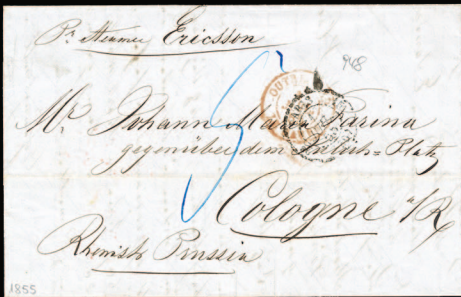 Pr Steamer Ericsson
948
OUTRE
5
Mr. Johann Maria Farina
gegenüber dem Jülichs=Platz
Cologne a/R
Rhenish Prussia
1855